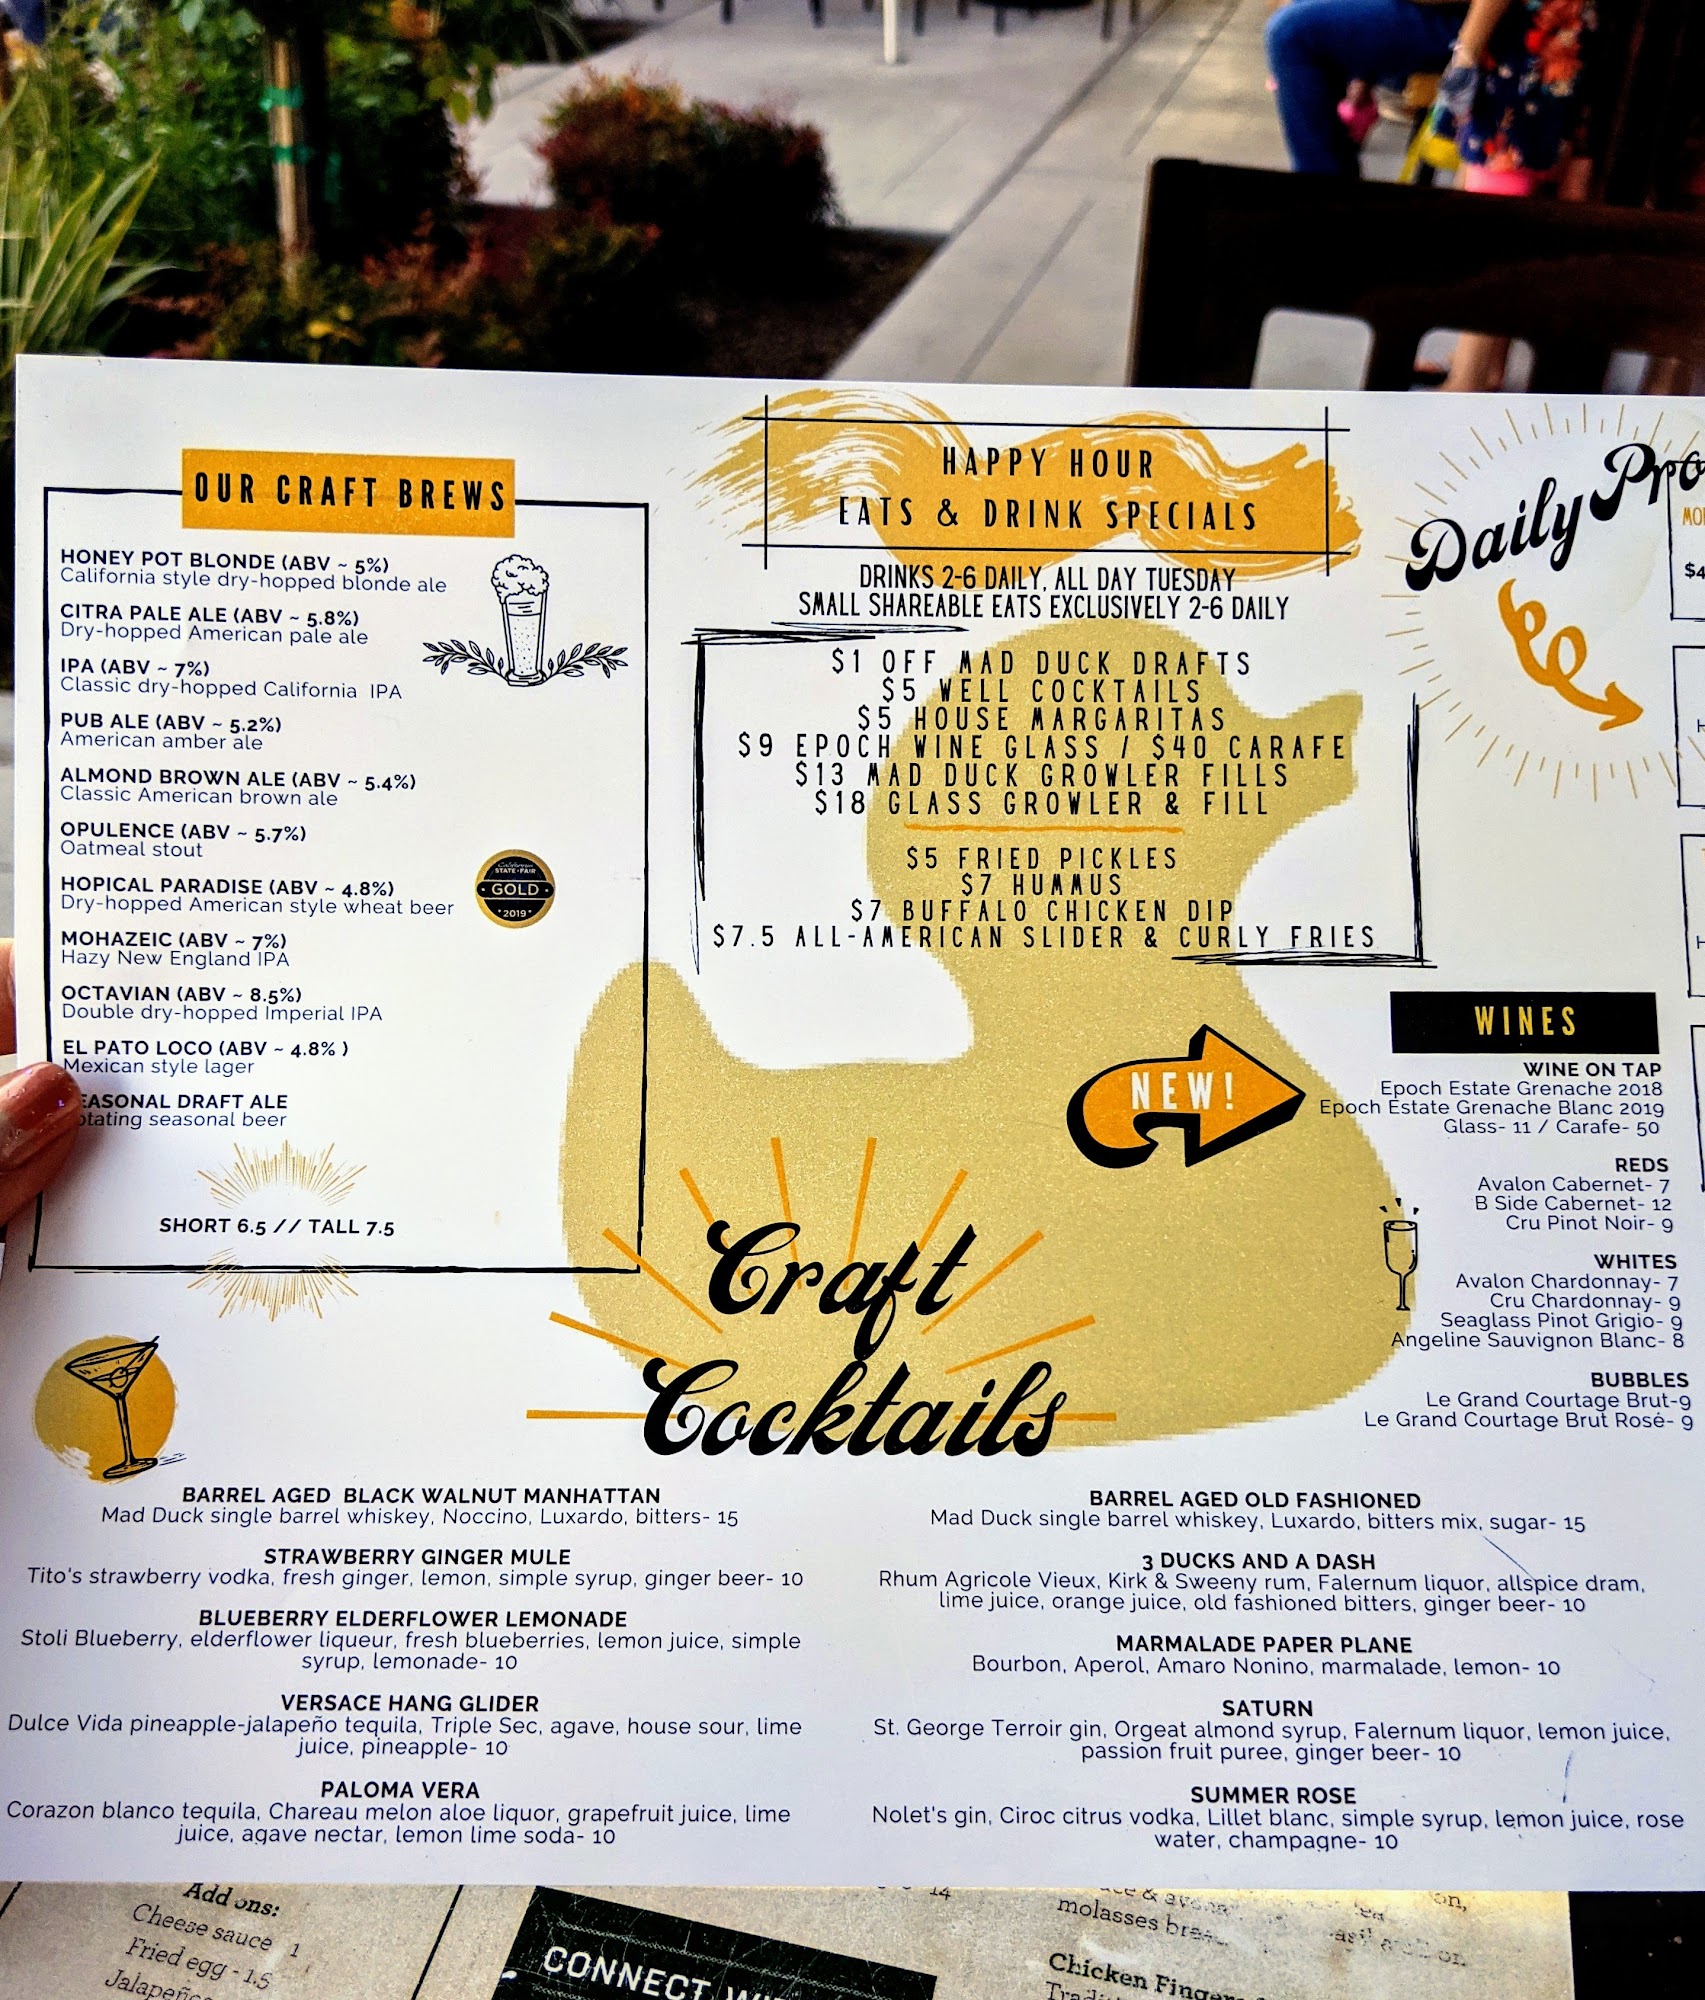 OUR CRAFT BREWS
HONEY POT BLONDE (ABV ~ 5%)
California style dry-hopped blonde ale
CITRA PALE ALE (ABV ~ 5.8%)
Dry-hopped American pale ale
IPA (ABV ~ 7%)
Classic dry-hopped California IPA
PUB ALE (ABV ~ 5.2%)
American amber ale
ALMOND BROWN ALE (ABV ~ 5.4%)
Classic American brown ale
OPULENCE (ABV ~ 5.7%)
Oatmeal stout
HOPICAL PARADISE (ABV ~ 4.8%)
Dry-hopped American style wheat beer
California
STATE·FAIR
GOLD
2019
MOHAZEIC (ABV ~ 7%)
Hazy New England IPA
OCTAVIAN (ABV ~ 8.5%)
Double dry-hopped Imperial IPA
EL PATO LOCO (ABV ~ 4.8% )
Mexican style lager
EASONAL DRAFT ALE
otating seasonal beer
SHORT 6.5 // TALL 7.5
HAPPY HOUR
EATS & DRINK SPECIALS
DRINKS 2-6 DAILY, ALL DAY TUESDAY
SMALL SHAREABLE EATS EXCLUSIVELY 2-6 DAILY
$1 OFF MAD DUCK DRAFTS
$5 WELL COCKTAILS
$5 HOUSE MARGARITAS
$9 EPOCH WINE GLASS / $40 CARAFE
$13 MAD DUCK GROWLER FILLS
$18 GLASS GROWLER & FILL
$5 FRIED PICKLES
$7 HUMMUS
$7 BUFFALO CHICKEN DIP
$7.5 ALL-AMERICAN SLIDER & CURLY FRIES
Daily Pro
MO
$4
H
H
NEW!
WINES
WINE ON TAP
Epoch Estate Grenache 2018
Epoch Estate Grenache Blanc 2019
Glass- 11 / Carafe- 50
REDS
Avalon Cabernet- 7
B Side Cabernet- 12
Cru Pinot Noir- 9
WHITES
Avalon Chardonnay- 7
Cru Chardonnay- 9
Seaglass Pinot Grigio- 9
Angeline Sauvignon Blanc- 8
BUBBLES
Le Grand Courtage Brut-9
Le Grand Courtage Brut Rosé- 9
Craft
Cocktails
BARREL AGED BLACK WALNUT MANHATTAN
Mad Duck single barrel whiskey, Noccino, Luxardo, bitters- 15
STRAWBERRY GINGER MULE
Tito's strawberry vodka, fresh ginger, lemon, simple syrup, ginger beer- 10
BLUEBERRY ELDERFLOWER LEMONADE
Stoli Blueberry, elderflower liqueur, fresh blueberries, lemon juice, simple
syrup, lemonade- 10
VERSACE HANG GLIDER
Dulce Vida pineapple-jalapeño tequila, Triple Sec, agave, house sour, lime
juice, pineapple- 10
PALOMA VERA
Corazon blanco tequila, Chareau melon aloe liquor, grapefruit juice, lime
juice, agave nectar, lemon lime soda- 10
BARREL AGED OLD FASHIONED
Mad Duck single barrel whiskey, Luxardo, bitters mix, sugar- 15
3 DUCKS AND A DASH
Rhum Agricole Vieux, Kirk & Sweeny rum, Falernum liquor, allspice dram,
lime juice, orange juice, old fashioned bitters, ginger beer- 10
MARMALADE PAPER PLANE
Bourbon, Aperol, Amaro Nonino, marmalade, lemon- 10
SATURN
St. George Terroir gin, Orgeat almond syrup, Falernum liquor, lemon juice,
passion fruit puree, ginger beer- 10
SUMMER ROSE
Nolet's gin, Ciroc citrus vodka, Lillet blanc, simple syrup, lemon juice, rose
water, champagne- 10
Add ons:
Cheese sauce 1
Fried egg - 1.5
Jalapeño
CONNECT WI
14
molasses
Chicken Finger